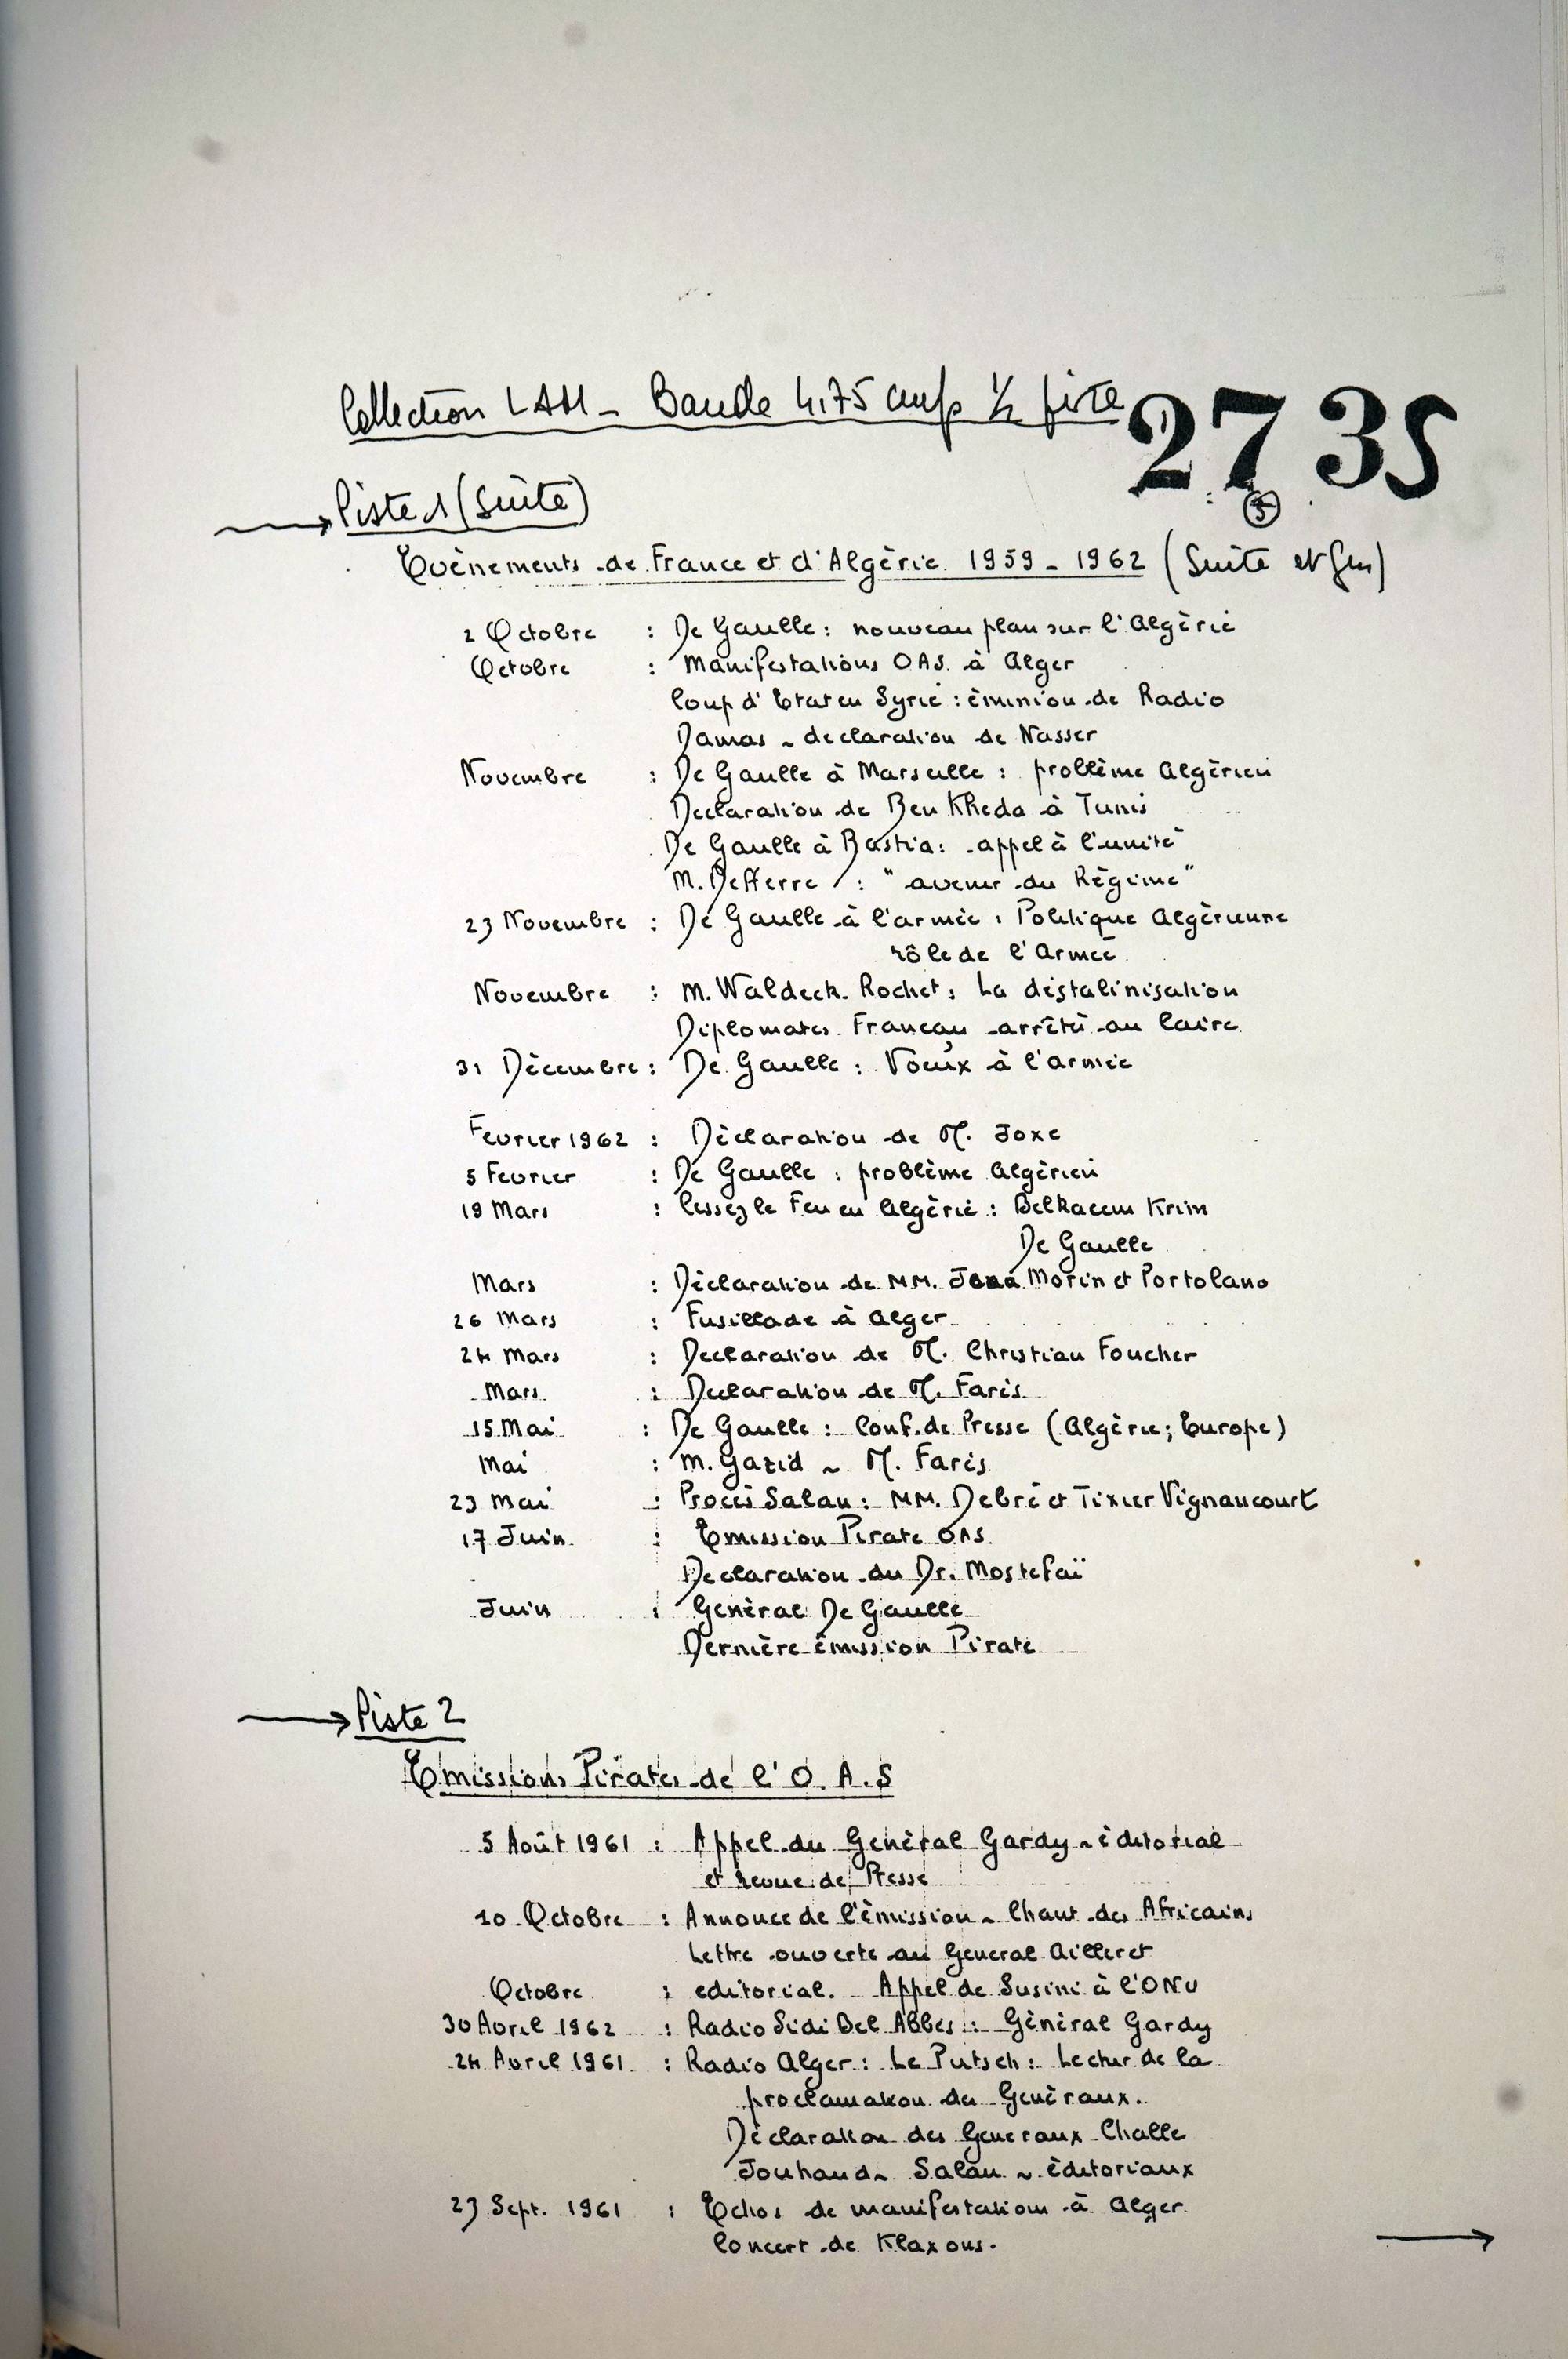 Collection LAM - Bande 4,75 cm/s ½ piste
2735
③
→ Piste 1 (Suite)
Evènements de France et d'Algèrie 1959 - 1962 (Suite et fin)
2 Octobre : De Gaulle : nouveau plan sur l'Algèrie
Octobre : Manifestations OAS à Alger
Coup d'Etat en Syrie : émission de Radio
Damas ~ declaration de Nasser
Novembre : De Gaulle à Marseille : problème Algèrien
Declaration de Ben Kheda à Tunis
De Gaulle à Bastia : appel à l'unité
M. Defferre : "avenir du Règime"
23 Novembre : De Gaulle à l'armée : Politique Algèrienne
rôle de l'Armée
Novembre : M. Waldeck Rochet : La déstalinisation
Diplomates Français arrêtés au Caire
31 Dècembre : De Gaulle : Voeux à l'armée
Fevrier 1962 : Dèclaration de M. Joxe
5 Fevrier : De Gaulle : problème Algèrien
19 Mars : Cessez le Feu en Algèrie : Belkacem Krim
De Gaulle
Mars : Dèclaration de MM. Morin et Portolano
26 Mars : Fusillade à Alger
24 Mars : Declaration de M. Christian Foucher
Mars : Declaration de M. Farès
15 Mai : De Gaulle : Conf. de Presse (Algèrie ; Europe)
Mai : M. Gazid ~ M. Farès
23 Mai : Procès Salan : MM. Debré et Tixier Vignancourt
17 Juin : Emission Pirate OAS
Declaration du Dr. Mostefaï
Juin : Genèral De Gaulle
Dernière émission Pirate
→ Piste 2
Emissions Pirates de l'O.A.S
5 Août 1961 : Appel du Genèral Gardy ~ èditorial
et revue de Presse
10 Octobre : Annonce de l'èmission ~ Chant des Africains
Lettre ouverte au General Ailleret
Octobre : editorial. Appel de Susini à l'ONU
30 Avril 1962 : Radio Sidi Bel Abbès : Gènèral Gardy
24 Avril 1961 : Radio Alger : Le Putsch : Lecture de la
proclamation des Genèraux.
Dèclaration des Generaux Challe
Jouhaud ~ Salan ~ èditoriaux
23 Sept. 1961 : Echos de manifestations à Alger
Concert de Klaxons.
→